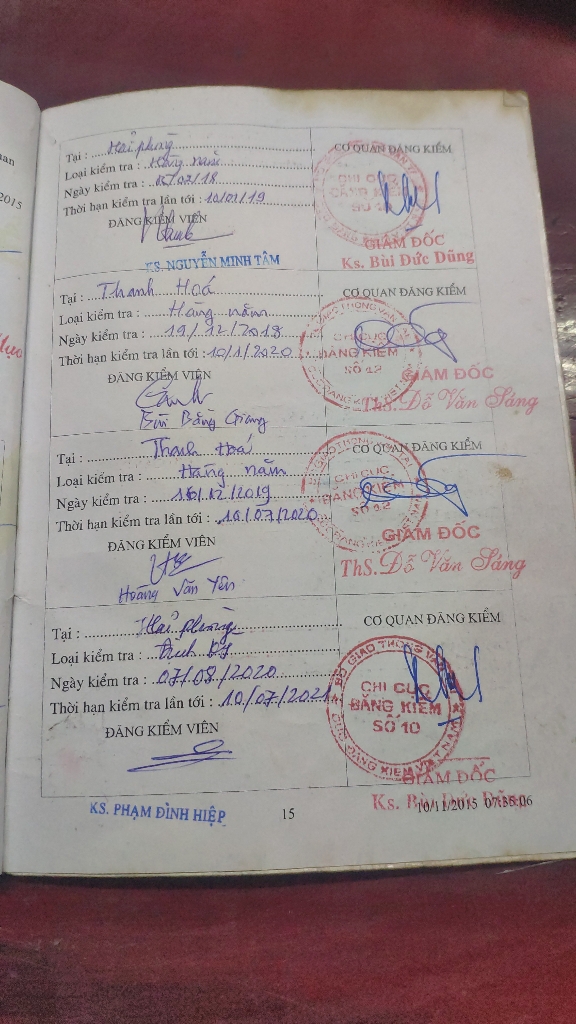 Tại : Hải phòng
CƠ QUAN ĐĂNG KIỂM
Loại kiểm tra : Hàng năm
Ngày kiểm tra : /18
Thời hạn kiểm tra lần tới : /19
ĐĂNG KIỂM VIÊN
CHI CỤC
ĐĂNG KIỂM
SỐ
GIÁM ĐỐC
Ks. Bùi Đức Dũng
KS. NGUYỄN MINH TÂM
Tại : Thanh Hoá
CƠ QUAN ĐĂNG KIỂM
Loại kiểm tra : Hàng năm
Ngày kiểm tra : 19/12/2018
Thời hạn kiểm tra lần tới : 10/1/2020
ĐĂNG KIỂM VIÊN
CHI CỤC
ĐĂNG KIỂM
SỐ 12
GIÁM ĐỐC
ThS. Đỗ Văn Sáng
Bùi Bằng Giang
Tại : Thanh Hoá
CƠ QUAN ĐĂNG KIỂM
Loại kiểm tra : Hàng năm
Ngày kiểm tra : /12/2019
Thời hạn kiểm tra lần tới : 10/07/2020
ĐĂNG KIỂM VIÊN
CHI CỤC
ĐĂNG KIỂM
SỐ 12
GIÁM ĐỐC
ThS. Đỗ Văn Sáng
Hoàng Văn Yên
Tại : Hải phòng
CƠ QUAN ĐĂNG KIỂM
Loại kiểm tra : Định kỳ
Ngày kiểm tra : 07/08/2020
Thời hạn kiểm tra lần tới : 10/07/2021
ĐĂNG KIỂM VIÊN
BỘ GIAO THÔNG VẬN TẢI
CHI CỤC
ĐĂNG KIỂM
SỐ 10
CỤC ĐĂNG KIỂM VIỆT NAM
GIÁM ĐỐC
Ks. Bùi Đức Dũng
KS. PHẠM ĐÌNH HIỆP
15
10/11/2015 07:35:06